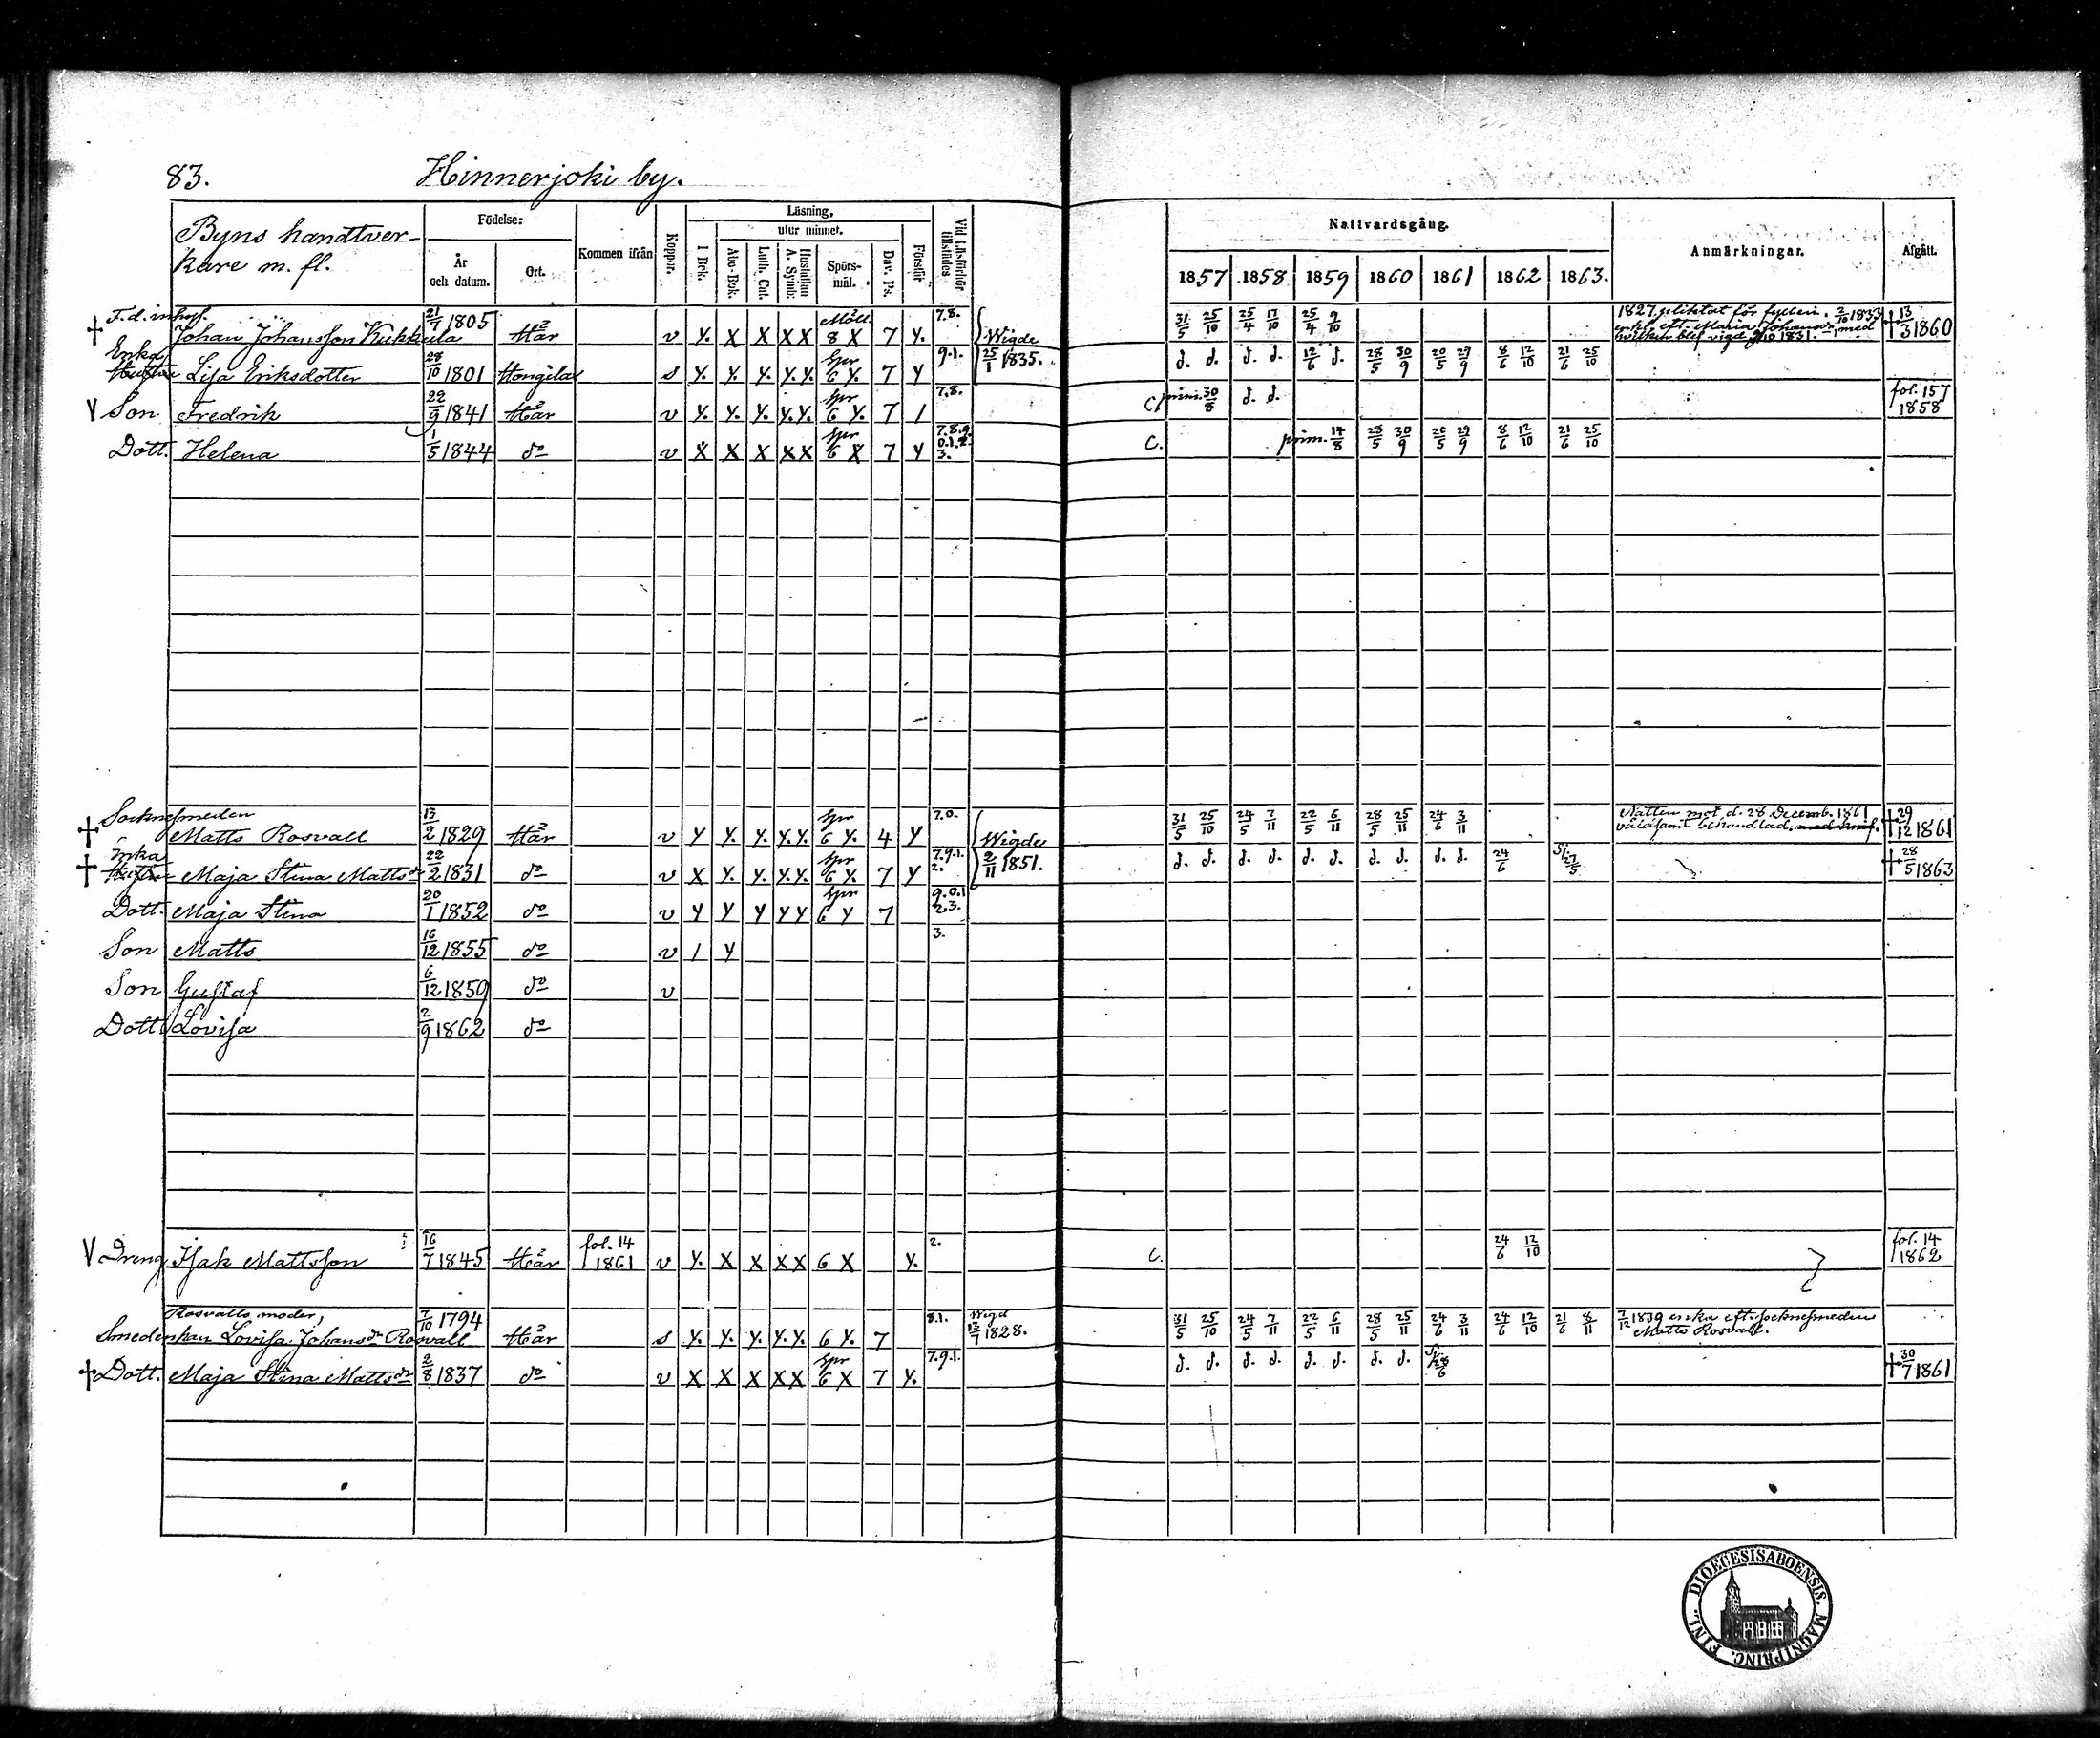 83. Hinnerjoki by.
Byns handtver-
kare m. fl.
Födelse:
År
och datum.
Ort.
Kommen ifrån
Koppor.
Läsning,
utur minnet.
I Bok.
Abc-Bok.
Luth. Cat.
Hustaflan
A. Symb:
Spörs-
mål.
Dav. Ps.
Förstår
Vid Läsförhör
tillstädes
Nattvardsgång.
1857 1858 1859 1860 1861 1862 1863.
Anmärkningar.
Afgått.
† F. d. inhys.
Johan Johansson Kukkula 21/7 1805 Här v Y. X X XX Möll. 8 X 7 Y. 7.8. Wigde 25/1 1835. 31/5 25/10 25/4 17/10 25/4 9/10 † 13/3 1860
1827 pliktat för fylleri. 2/10 1833
enkl. eft. Maria Johansdr, med
hvilken blef vigd 1831.
Enka Lisa Eriksdotter 28/10 1801 Hongila s Y. Y. Y. Y.Y. Spr 6 Y. 7 Y 9.1. d. d. d. d. 12/6 d. 28/5 30/9 20/5 29/9 8/6 12/10 21/6 25/10
V Son Fredrik 22/9 1841 Här v Y. Y. Y. Y.Y. Spr 6 Y. 7 1 7.8. C. prim. 30/8 d. d. fol. 157 1858
Dott. Helena 1/5 1844 do v X X X XX Spr 6 X 7 Y 7.8.9. 0.1.2. 3. C. prim. 14/8 28/5 30/9 20/5 29/9 8/6 12/10 21/6 25/10
† Socknesmeden
Matts Rosvall 13/2 1829 Här v Y Y. Y. Y.Y. Spr 6 Y. 4 Y 7.0. Wigde 2/11 1851. 31/5 25/10 24/5 7/11 22/5 6/11 28/5 25/11 24/6 3/11 † 29/12 1861
Natten mot d. 28 Decemb. 1861
våldsamt behandlad.
† Enka Maja Stina Mattsdr 22/2 1831 do v X Y. Y. Y.Y. Spr 6 Y. 7 Y 7.9.1. 2. d. d. d. d. d. d. d. d. d. d. 24/6 † 28/5 1863
Dott. Maja Stina 20/1 1852 do v Y Y Y YY Spr 6 Y 7 9.0.1 2.3.
Son Matts 16/12 1855 do v 1 Y 3.
Son Gustaf 6/12 1859 do v
Dott. Lovisa 2/9 1862 do
V Dreng Isak Mattsson 16/7 1845 Här fol. 14 1861 v Y. X X XX 6 X Y. 2. C. 24/6 12/10 fol. 14 1862
Rosvalls moder,
Smedenkan Lovisa Johansdr Rosvall 7/10 1794 Här s Y. Y. Y. Y.Y. 6 Y. 7 8.1. Wigd 13/7 1828. 31/5 25/10 24/5 7/11 22/5 6/11 28/5 25/11 24/6 3/11 24/6 12/10 21/6 8/11
7/12 1839 enka eft. socknesmeden
Matts Rosvall.
† Dott. Maja Stina Mattsdr 2/8 1837 do v X X X XX Spr 6 X 7 Y. 7.9.1. d. d. d. d. d. d. d. d. † 30/7 1861
DIOECESIS ABOENSIS. MAGNI PRINC. FINL.